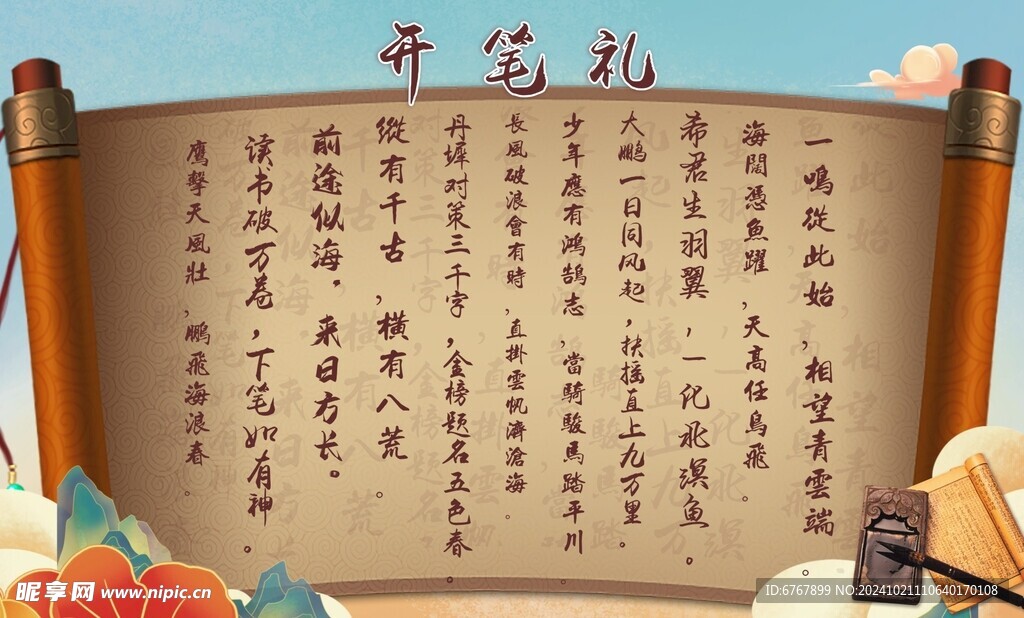 开笔礼
一鳴從此始,相望青雲端。
海闊憑魚躍,天高任鸟飛。
希君生羽翼,一化北溟鱼。
大鹏一日同风起,扶摇直上九万里。
少年應有鴻鵠志,當騎駿馬踏平川。
長風破浪會有時,直掛雲帆濟滄海。
丹墀对策三千字,金榜题名五色春。
縱有千古,橫有八荒。
前途似海。来日方长。
读书破万卷,下笔如有神。
鹰擊天風壯,鵬飛海浪春。
昵享网 www.nipic.cn
ID:6767899 NO:20241021110640170108